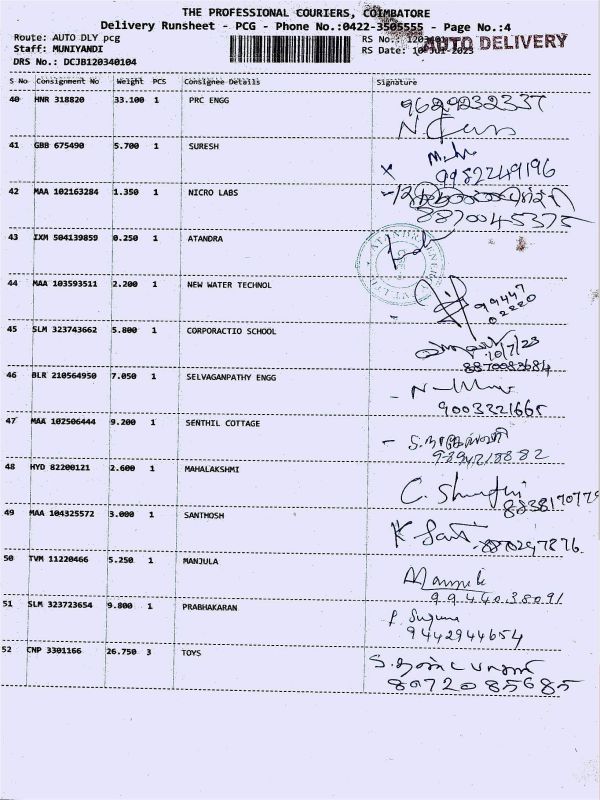 THE PROFESSIONAL COURIERS, COIMBATORE
Delivery Runsheet - PCG - Phone No.:0422-3505555 - Page No.:4
Route: AUTO DLY pcg
Staff: MUNIYANDI
DRS No.: DCJB120340104
RS No.:
RS Date: 10-Jul-2023
AUTO DELIVERY
S No Consignment No Weight PCS Consignee Details Signature
40 HNR 318820 33.100 1 PRC ENGG
9629232337
41 GBB 675490 5.700 1 SURESH
9982249196
42 MAA 102163284 1.350 1 NICRO LABS
8870045375
43 IXM 504139859 0.250 1 ATANDRA
44 MAA 103593511 2.200 1 NEW WATER TECHNOL
99447
02220
45 SLM 323743662 5.800 1 CORPORACTIO SCHOOL
10/7/23
8870083684
46 BLR 210564950 7.050 1 SELVAGANPATHY ENGG
9003221665
47 MAA 102506444 9.200 1 SENTHIL COTTAGE
9894218882
48 HYD 82200121 2.600 1 MAHALAKSHMI
C. Shruthi
49 MAA 104325572 3.000 1 SANTHOSH
8870297876
50 TVM 11220466 5.250 1 MANJULA
9944038091
51 SLM 323723654 9.800 1 PRABHAKARAN
9442944654
52 CNP 3301166 26.750 3 TOYS
8072085685